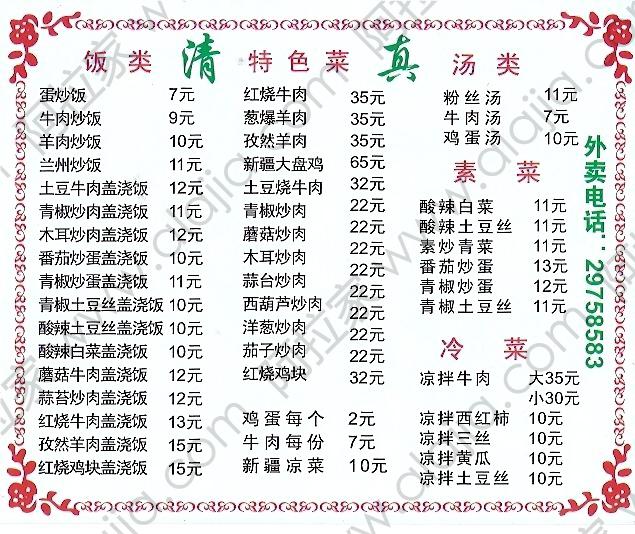 饭类 清 特色菜 真 汤类
蛋炒饭 7元
牛肉炒饭 9元
羊肉炒饭 10元
兰州炒饭 11元
土豆牛肉盖浇饭 12元
青椒炒肉盖浇饭 11元
木耳炒肉盖浇饭 12元
番茄炒蛋盖浇饭 10元
青椒炒蛋盖浇饭 11元
青椒土豆丝盖浇饭 10元
酸辣土豆丝盖浇饭 10元
酸辣白菜盖浇饭 10元
蘑菇牛肉盖浇饭 12元
蒜苔炒肉盖浇饭 12元
红烧牛肉盖浇饭 13元
孜然羊肉盖浇饭 15元
红烧鸡块盖浇饭 15元
红烧牛肉 35元
葱爆羊肉 35元
孜然羊肉 35元
新疆大盘鸡 65元
土豆烧牛肉 32元
青椒炒肉 22元
蘑菇炒肉 22元
木耳炒肉 22元
蒜台炒肉 22元
西葫芦炒肉 22元
洋葱炒肉 22元
茄子炒肉 22元
红烧鸡块 32元
鸡蛋每个 2元
牛肉每份 7元
新疆凉菜 10元
粉丝汤 11元
牛肉汤 7元
鸡蛋汤 10元
素菜
酸辣白菜 11元
酸辣土豆丝 11元
素炒青菜 11元
番茄炒蛋 13元
青椒炒蛋 12元
青椒土豆丝 11元
冷菜
凉拌牛肉 大35元
小30元
凉拌西红柿 10元
凉拌三丝 10元
凉拌黄瓜 10元
凉拌土豆丝 10元
外卖电话：29758583
阿拉家 www.alajia.com